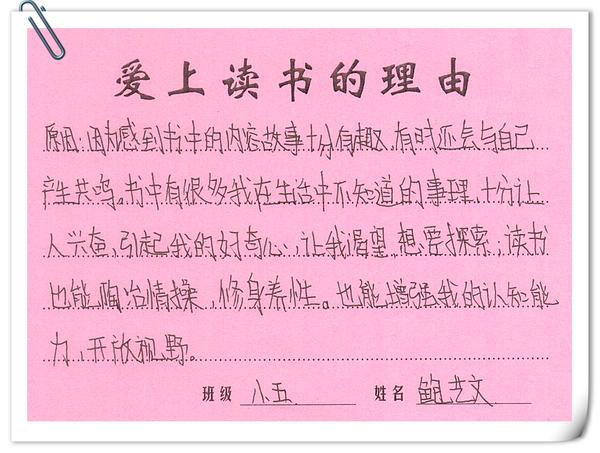 爱上读书的理由
原因:因为感到书中的内容故事十分有趣,有时还会与自己
产生共鸣。书中有很多我在生活中不知道的事理,十分让
人兴奋,引起我的好奇心,让我渴望,想要探索;读书
也能陶冶情操,修身养性。也能增强我的认知能
力,开放视野。
班级 小五 姓名 鲍艺文